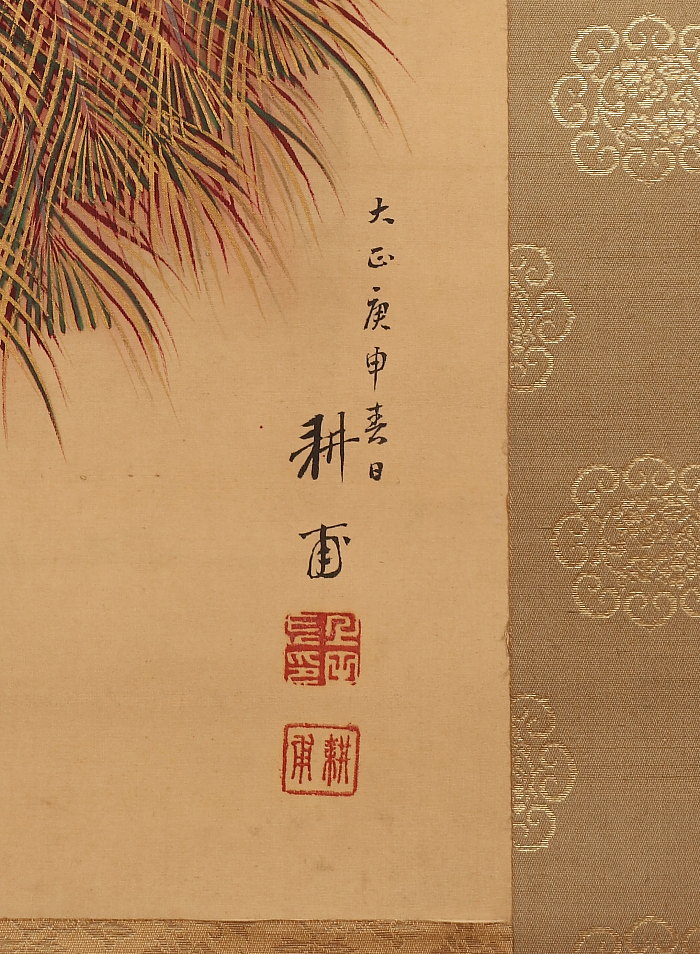 大正庚申春日
耕甫
耕甫